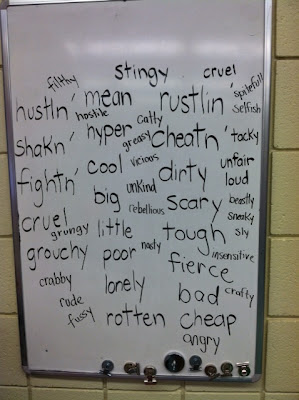 stingy cruel
filthy spitefull
hustln' mean rustlin' selfish
hostile catty
shakn' hyper greasy cheatn' tacky
cool vicious dirty unfair
fightn' unkind loud
big scary beastly
cruel rebellious sneaky
grungy little tough sly
grouchy poor nasty insensitive
fierce
crabby lonely bad crafty
rude
fussy rotten cheap
angry